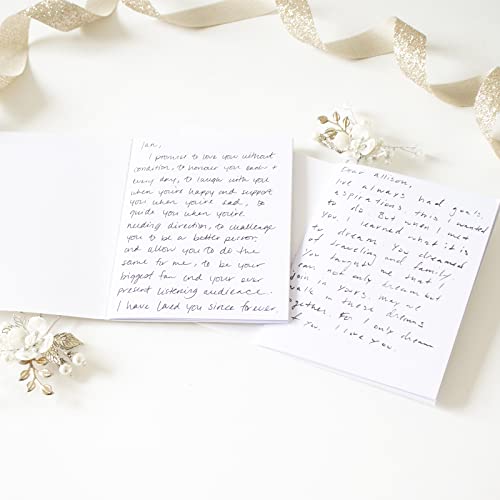 Ian,
I promise to love you without
condition, to honour you each +
every day, to laugh with you
when you're happy and support
you when you're sad, to
guide you when you're
needing direction, to challenge
you to be a better person,
and allow you to do the
same for me, to be your
biggest fan and your ever
present listening audience.
I have loved you since forever.
Dear Allison,
I've always had goals,
aspirations this I wanted
to do. But when I met
you I learned what it is
to dream. You dreamed
of traveling and family
You taught me that I
can not only dream but
join in yours. May we
walk in these dreams
together. For I only dream
of you. I love you.